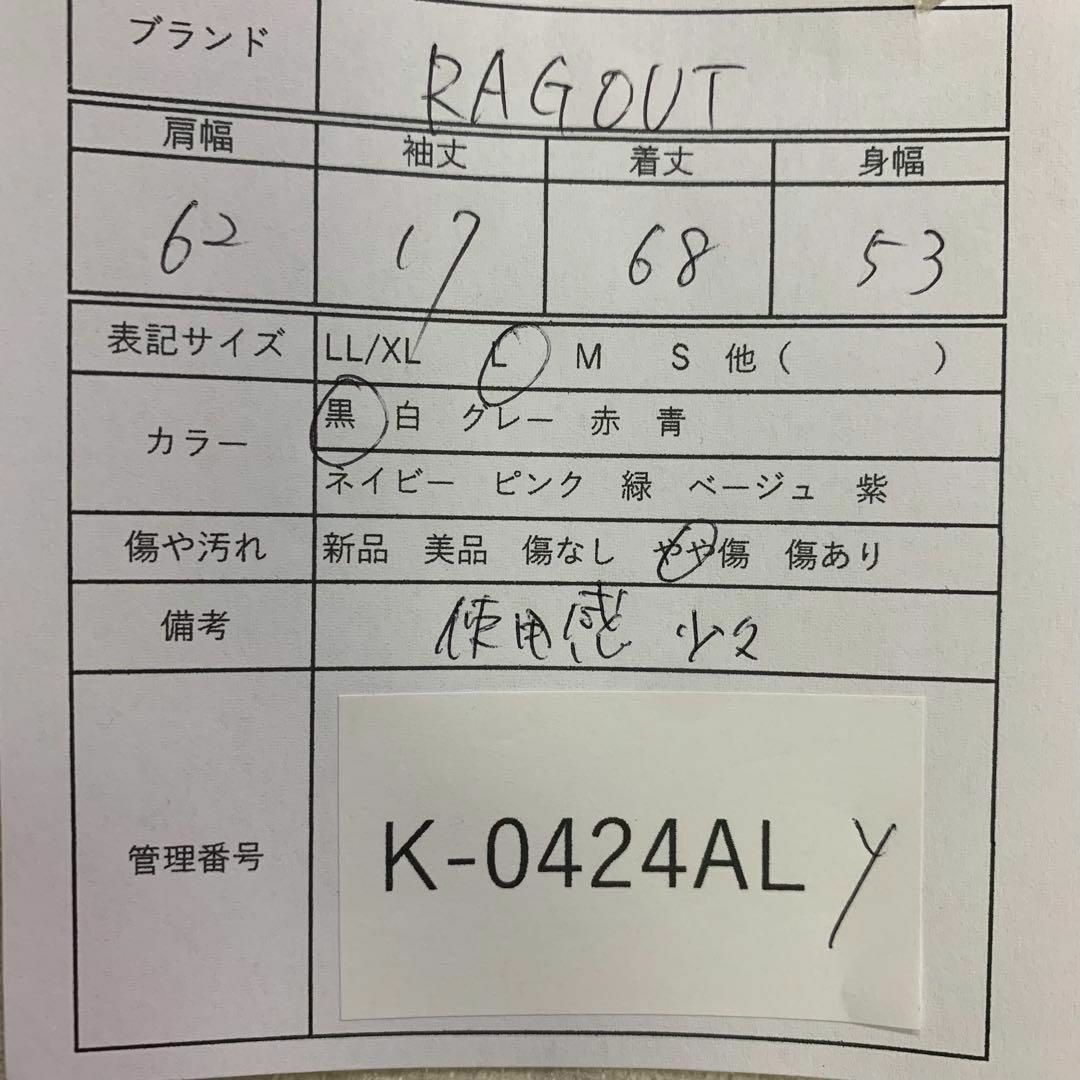 ブランド RAGOUT
肩幅 袖丈 着丈 身幅
62 17 68 53
表記サイズ LL/XL L M S 他( )
カラー 黒 白 グレー 赤 青
ネイビー ピンク 緑 ベージュ 紫
傷や汚れ 新品 美品 傷なし やや傷 傷あり
備考 使用感 少々
管理番号 K-0424AL Y